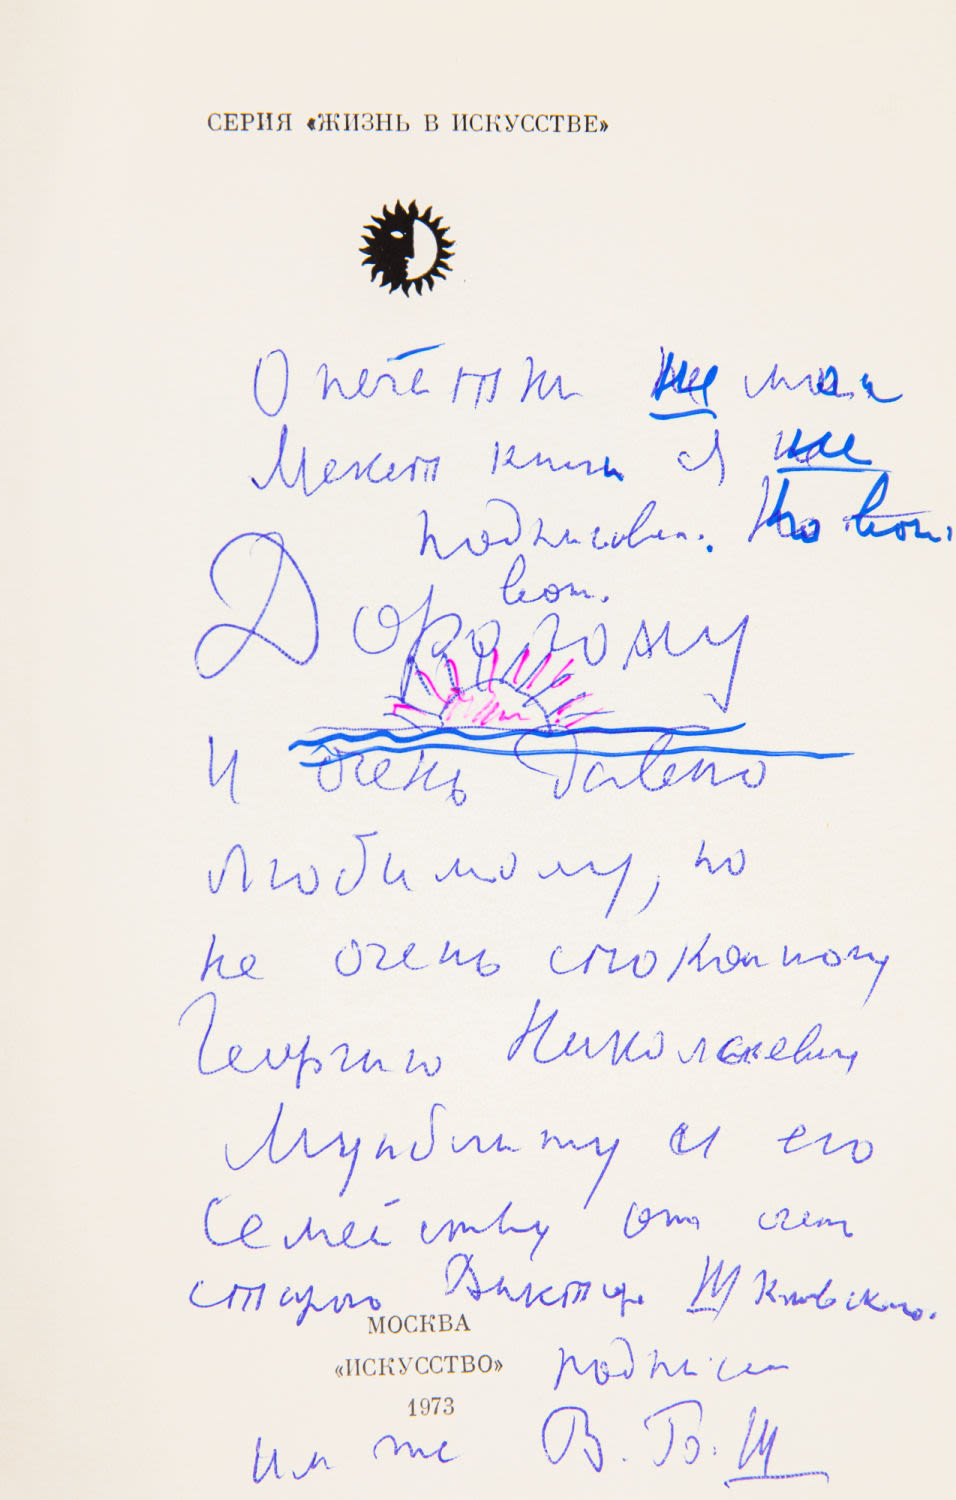 СЕРИЯ «ЖИЗНЬ В ИСКУССТВЕ»
Опечатки не мои
Макет книги я не
подписывал. Но вот.
вот.
Дорогому
и очень давно
любимому, но
не очень спокойному
Георгию Николаевичу
Мунблиту и его
семейству от очень
старого Виктора Шкловского.
МОСКВА
«ИСКУССТВО»
1973
подписал
им же В. Б. Ш